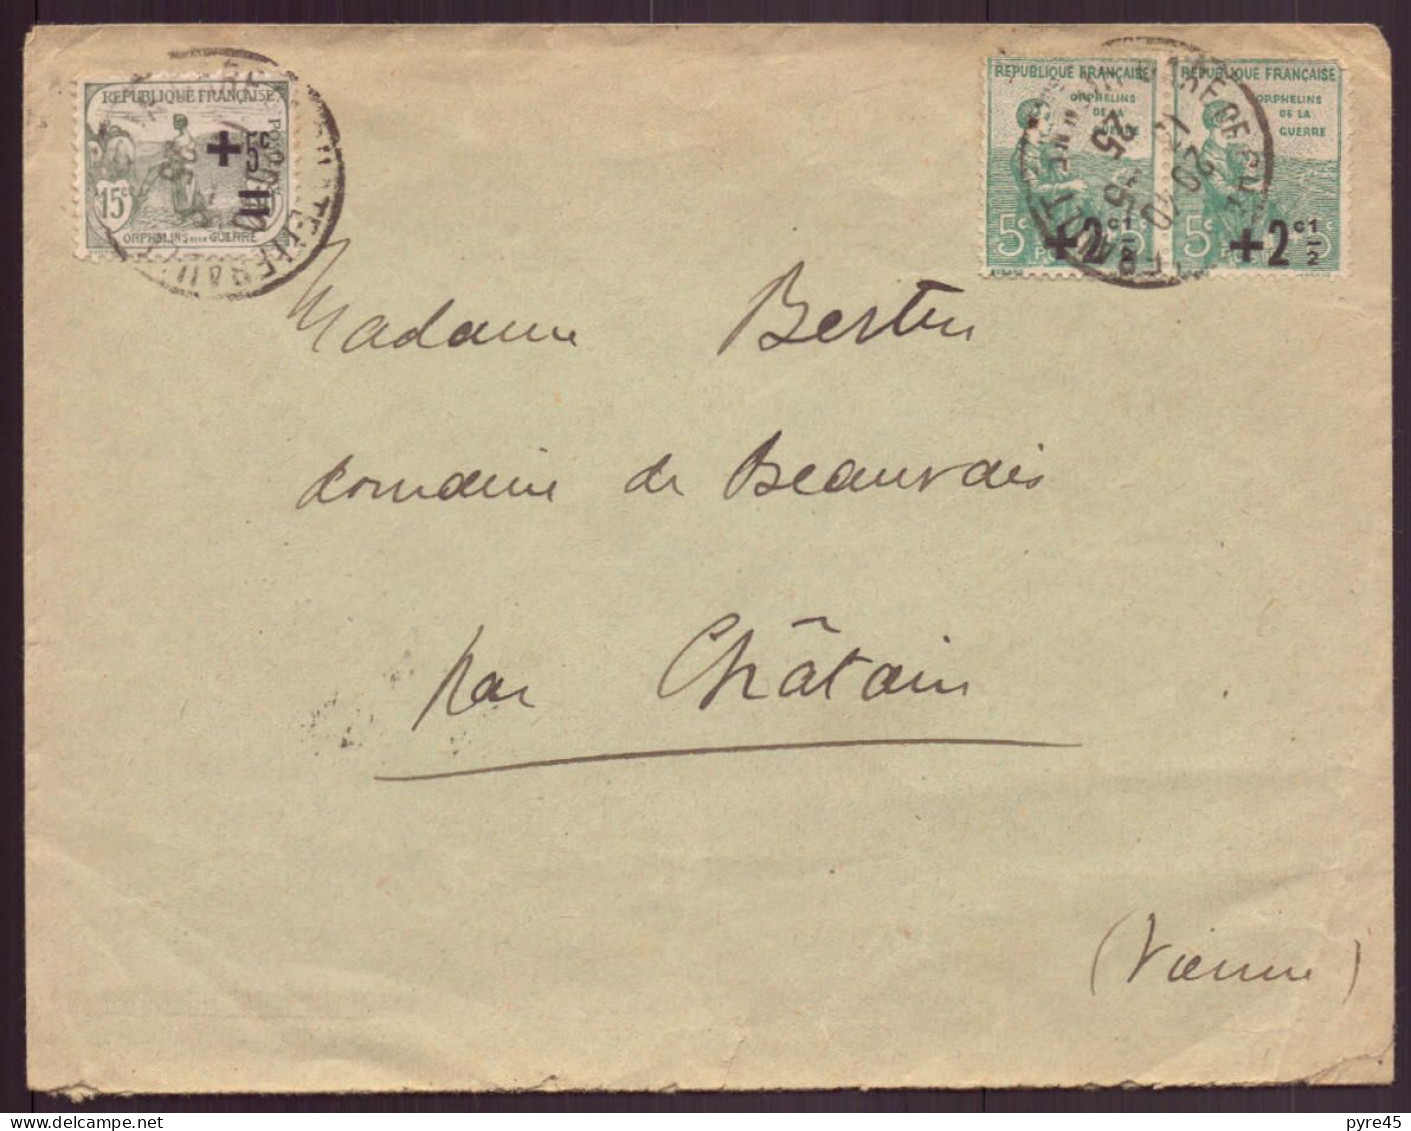 REPUBLIQUE FRANÇAISE
+5c
15c
POSTES
ORPHELINS DE LA GUERRE
REPUBLIQUE FRANÇAISE
ORPHELINS
DE LA
GUERRE
5c
+2c½
REPUBLIQUE FRANÇAISE
ORPHELINS
DE LA
GUERRE
5c
+2c½
25 -5
Madame Bertin
domaine de Beauvais
par Châtain
(Vienne)
pyre45